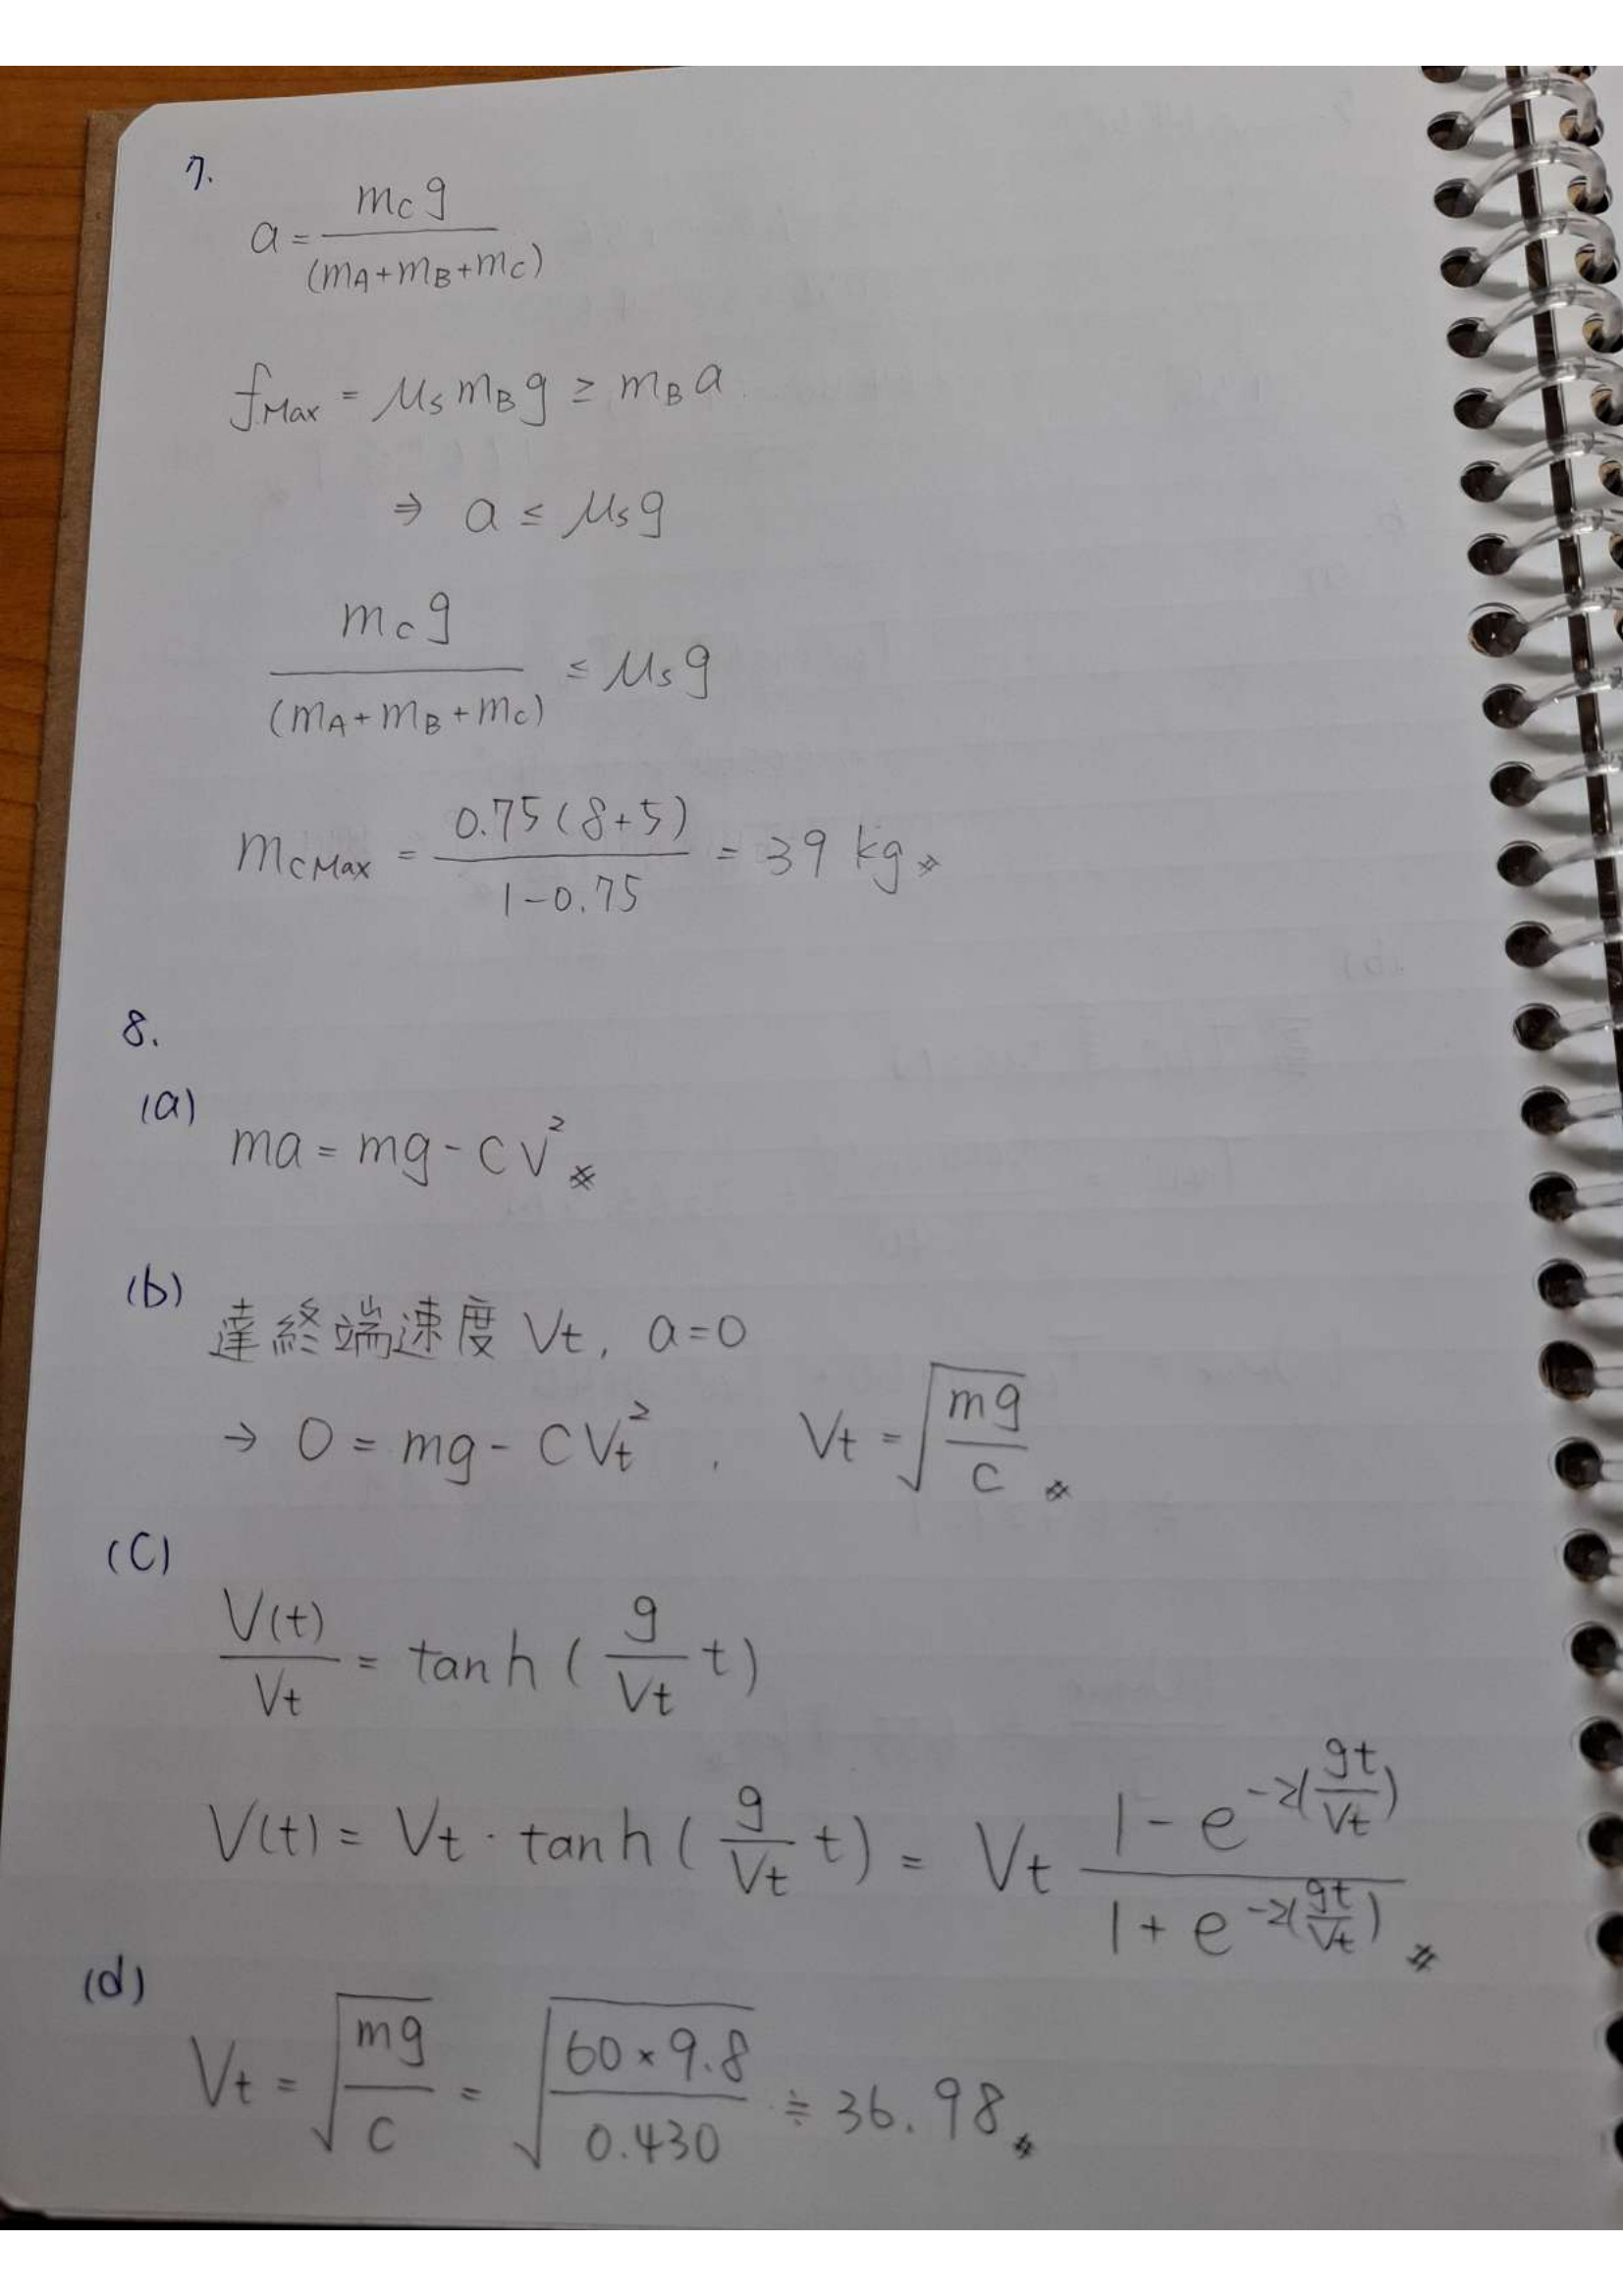 7.
a = mcg / (mA+mB+mc)
fMax = μs mB g ≥ mB a
⇒ a ≤ μs g
mcg / (mA+mB+mc) ≤ μs g
mcMax = 0.75(8+5) / 1-0.75 = 39 kg
8.
(a)
ma = mg - CV²
(b)
達終端速度 Vt, a=0
→ 0 = mg - CVt², Vt = √(mg / c)
(C)
V(t) / Vt = tanh ( g / Vt t)
V(t) = Vt · tanh ( g / Vt t) = Vt 1 - e^-2(gt / Vt) / 1 + e^-2(gt / Vt)
(d)
Vt = √(mg / c) = √(60×9.8 / 0.430) ≑ 36.98